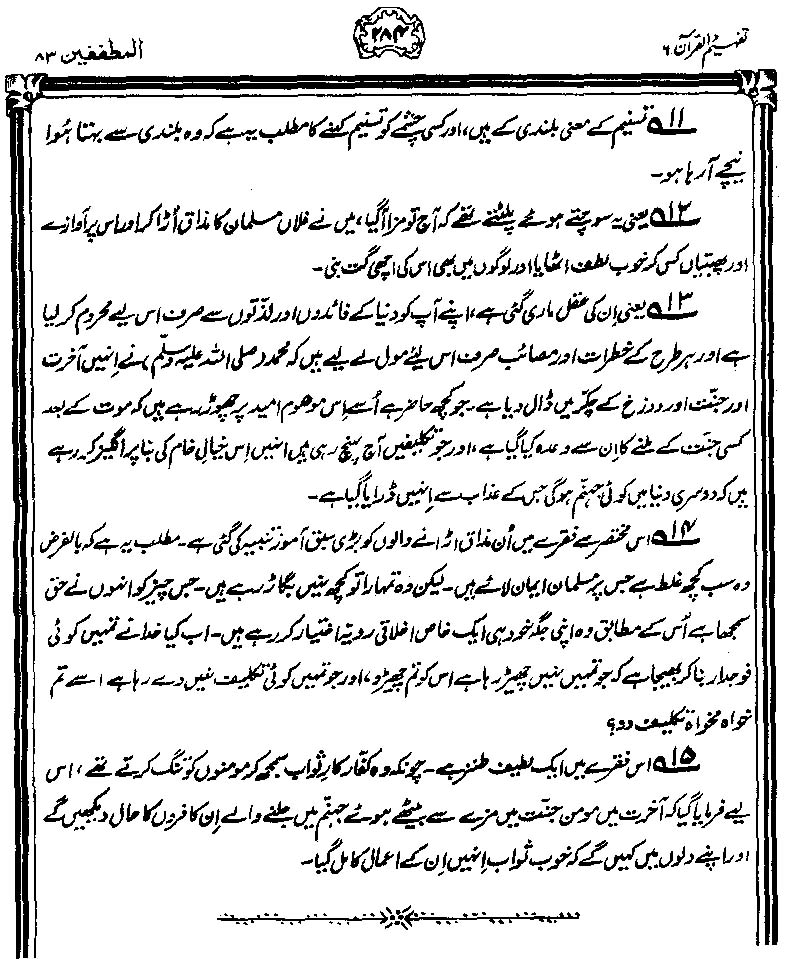 تفہیم القرآن ۶
۲۸۴
المطففین ۸۳
۱۱؎ تسنیم کے معنی بلندی کے ہیں، اور کسی چشمے کو تسنیم کہنے کا مطلب یہ ہے کہ وہ بلندی سے بہتا ہُوا
نیچے آ رہا ہو۔
۱۲؎ یعنی یہ سوچتے ہوئے پلٹتے تھے کہ آج تو مزا آگیا، میں نے فلاں مسلمان کا مذاق اُڑا کر اور اس پر آوازے
اور پھبتیاں کس کر خوب لطف اٹھایا اور لوگوں میں بھی اس کی اچھی گت بنی۔
۱۳؎ یعنی اِن کی عقل ماری گئی ہے، اپنے آپ کو دنیا کے فائدوں اور لذّتوں سے صرف اس لیے محروم کر لیا
ہے اور ہر طرح کے خطرات اور مصائب صرف اس لیے مول لے لیے ہیں کہ محمد (صلی اللہ علیہ وسلّم) نے اِنہیں آخرت
اور جنّت اور دوزخ کے چکّر میں ڈال دیا ہے۔ جو کچھ حاضر ہے اُسے اِس موھوم امید پر چھوڑ رہے ہیں کہ موت کے بعد
کسی جنّت کے ملنے کا اِن سے وعدہ کیا گیا ہے، اور جو تکلیفیں آج پہنچ رہی ہیں انہیں اِس خیالِ خام کی بنا پر انگیز کر رہے
ہیں کہ دوسری دنیا میں کوئی جہنّم ہوگی جس کے عذاب سے اِنہیں ڈرایا گیا ہے۔
۱۴؎ اس مختصر سے فقرے میں اُن مذاق اڑانے والوں کو بڑی سبق آموز تنبیہ کی گئی ہے۔ مطلب یہ ہے کہ بالفرض
وہ سب کچھ غلط ہے جس پر مسلمان ایمان لائے ہیں۔ لیکن وہ تمہارا تو کچھ نہیں بگاڑ رہے ہیں۔ جس چیز کو انہوں نے حق
سمجھا ہے اُس کے مطابق وہ اپنی جگہ خود ہی ایک خاص اخلاقی رویّہ اختیار کر رہے ہیں۔ اب کیا خدا نے تمہیں کوئی
فوجدار بنا کر بھیجا ہے کہ جو تمہیں نہیں چھیڑ رہا ہے اس کو تم چھیڑو، اور جو تمہیں کوئی تکلیف نہیں دے رہا ہے اسے تم
خواہ مخواہ تکلیف دو؟
۱۵؎ اس فقرے میں ایک لطیف طنز ہے۔ چونکہ وہ کفّار کارِ ثواب سمجھ کر مومنوں کو تنگ کرتے تھے، اس
لیے فرمایا گیا کہ آخرت میں مومن جنّت میں مزے سے بیٹھے ہوئے جہنّم میں جلنے والے اِن کافروں کا حال دیکھیں گے
اور اپنے دلوں میں کہیں گے کہ خوب ثواب اِنہیں اِن کے اعمال کا مل گیا۔